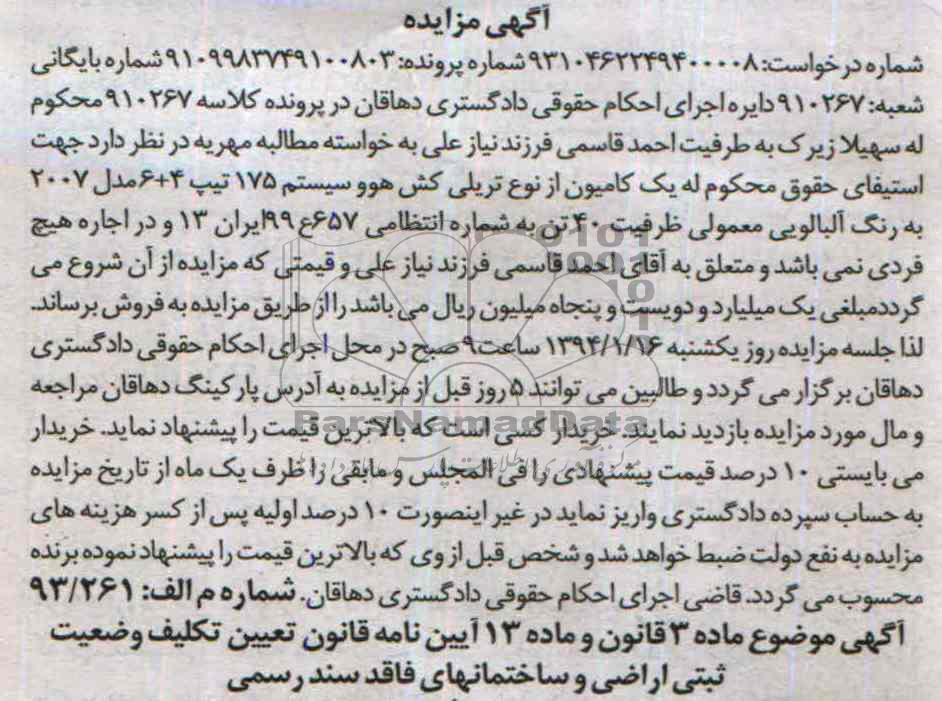 آگهی مزایده
شماره درخواست: ۹۳۱۰۴۶۲۲۴۹۴۰۰۰۰۸ شماره پرونده: ۹۱۰۹۹۸۳۷۴۹۱۰۰۸۰۳ شماره بایگانی
شعبه: ۹۱۰۲۶۷ دایره اجرای احکام حقوقی دادگستری دهاقان در پرونده کلاسه ۹۱۰۲۶۷ محکوم
له سهیلا زیرک به طرفیت احمد قاسمی فرزند نیاز علی به خواسته مطالبه مهریه در نظر دارد جهت
استیفای حقوق محکوم له یک کامیون از نوع تریلی کش هوو سیستم ۱۷۵ تیپ ۴+۶ مدل ۲۰۰۷
به رنگ آلبالویی معمولی ظرفیت ۴۰ تن به شماره انتظامی ۶۵۷ع۹۹ ایران ۱۳ و در اجاره هیچ
فردی نمی باشد و متعلق به آقای احمد قاسمی فرزند نیاز علی و قیمتی که مزایده از آن شروع می
گردد مبلغی یک میلیارد و دویست و پنجاه میلیون ریال می باشد را از طریق مزایده به فروش برساند.
لذا جلسه مزایده روز یکشنبه ۱۳۹۴/۱/۱۶ ساعت ۹ صبح در محل اجرای احکام حقوقی دادگستری
دهاقان برگزار می گردد و طالبین می توانند ۵ روز قبل از مزایده به آدرس پارکینگ دهاقان مراجعه
و مال مورد مزایده بازدید نمایند. خریدار کسی است که بالاترین قیمت را پیشنهاد نماید. خریدار
می بایستی ۱۰ درصد قیمت پیشنهادی را فی المجلس و مابقی را ظرف یک ماه از تاریخ مزایده
به حساب سپرده دادگستری واریز نماید در غیر اینصورت ۱۰ درصد اولیه پس از کسر هزینه های
مزایده به نفع دولت ضبط خواهد شد و شخص قبل از وی که بالاترین قیمت را پیشنهاد نموده برنده
محسوب می گردد. قاضی اجرای احکام حقوقی دادگستری دهاقان. شماره م الف: ۹۳/۲۶۱
آگهی موضوع ماده ۳ قانون و ماده ۱۳ آیین نامه قانون تعیین تکلیف وضعیت
ثبتی اراضی و ساختمانهای فاقد سند رسمی
ParsNamadData